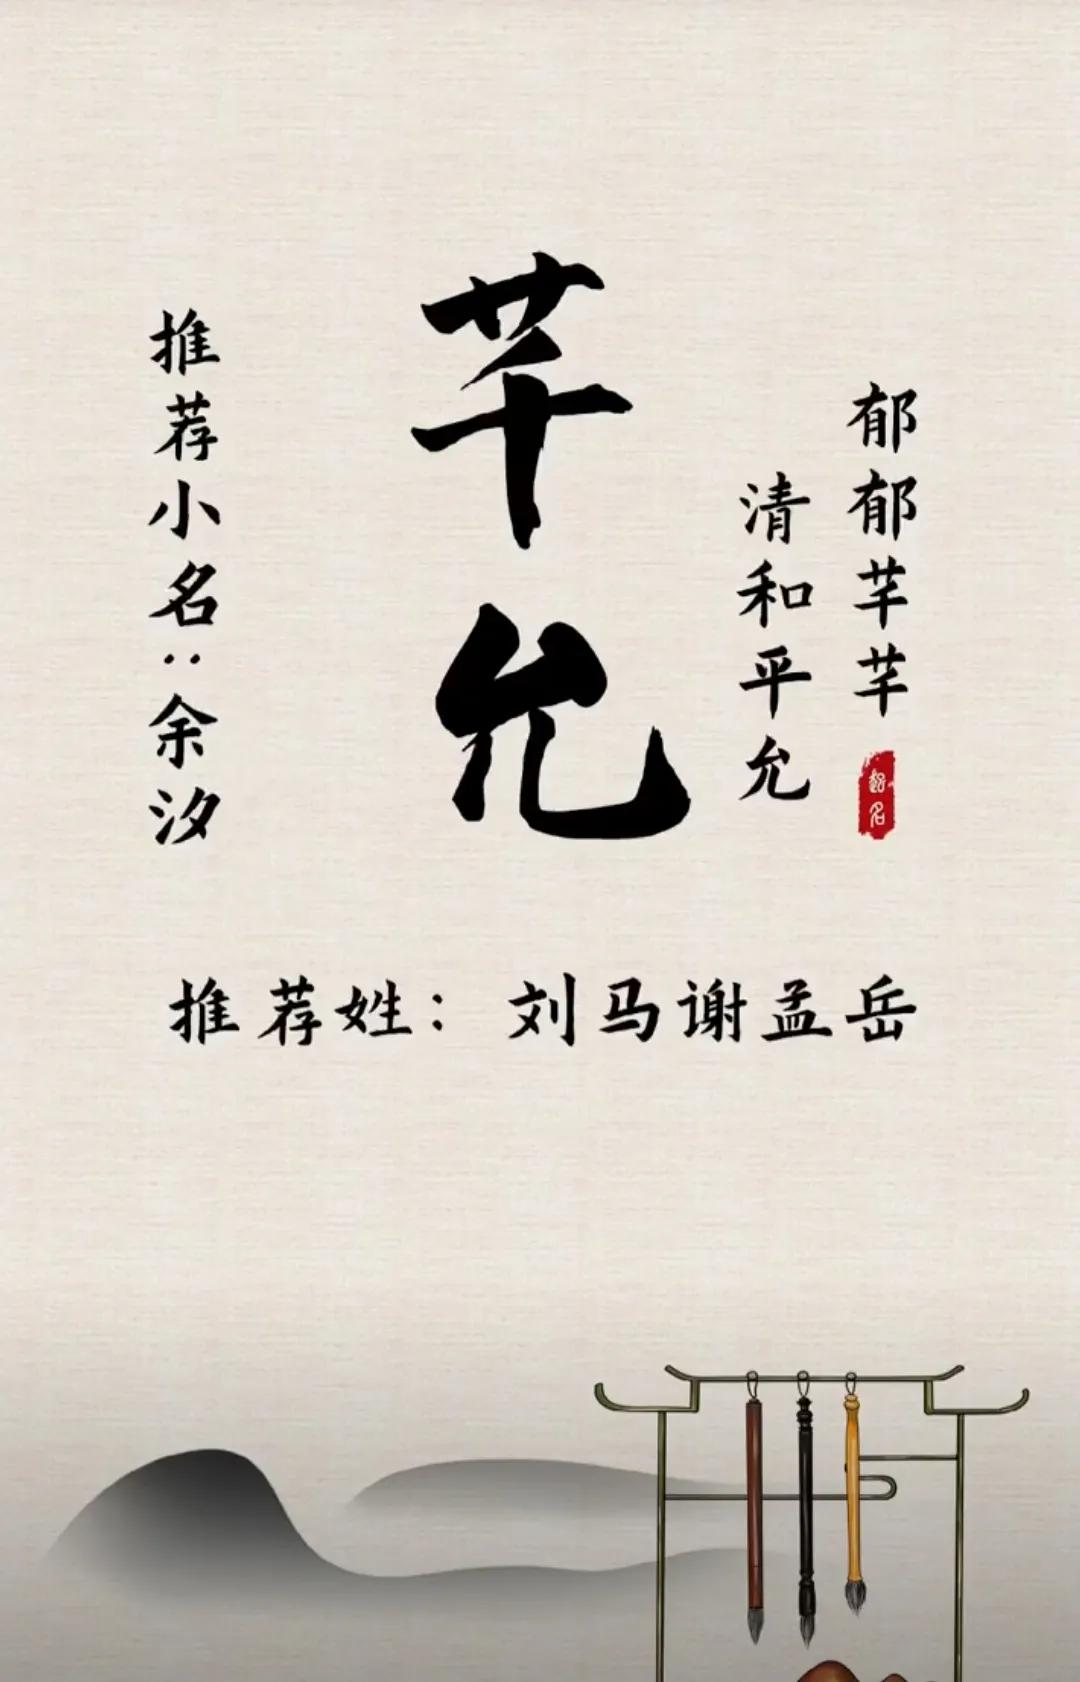 郁郁芊芊
清和平允
芊允
推荐小名：余汐
推荐姓：刘马谢孟岳